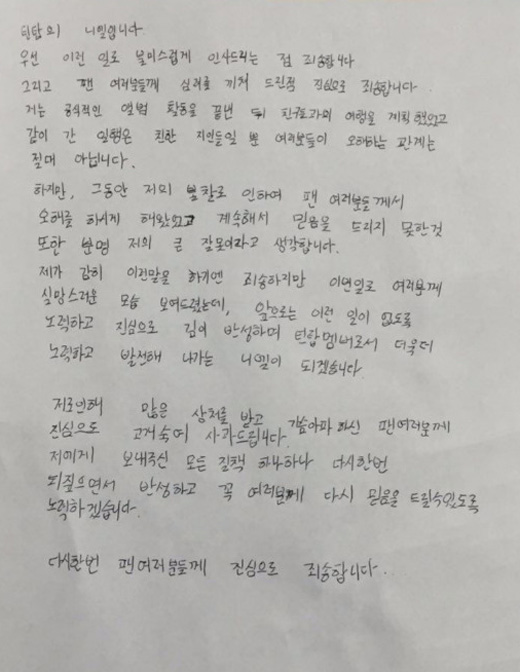 틴탑의 니엘입니다
우선 이런 일로 불미스럽게 인사드리는 점 죄송합니다
그리고 팬 여러분들께 심려를 끼쳐 드린점 진심으로 죄송합니다.
저는 공식적인 앨범 활동을 끝낸 뒤 친구들과의 여행을 계획했었고
같이 간 일행은 친한 지인들일 뿐 여러분들이 오해하는 관계는
절대 아닙니다.
하지만, 그동안 저의 불찰로 인하여 팬 여러분들께서
오해를 하시게 해왔었고 계속해서 믿음을 드리지 못한것
또한 분명 저의 큰 잘못이라고 생각합니다.
제가 감히 이런말을 하기엔 죄송하지만 이번일로 여러분께
실망스러운 모습 보여드렸는데, 앞으로는 이런 일이 없도록
노력하고 진심으로 깊이 반성하며 틴탑멤버로서 더욱더
노력하고 발전해 나가는 니엘이 되겠습니다
저로인해 많은 상처를 받고 가슴아파 하신 팬여러분께
진심으로 고개숙여 사과드립니다.
저에게 보내주신 모든 질책 하나하나 다시한번
되짚으면서 반성하고 꼭 여러분께 다시 믿음을 드릴수있도록
노력하겠습니다.
다시한번 팬여러분들께 진심으로 죄송합니다..